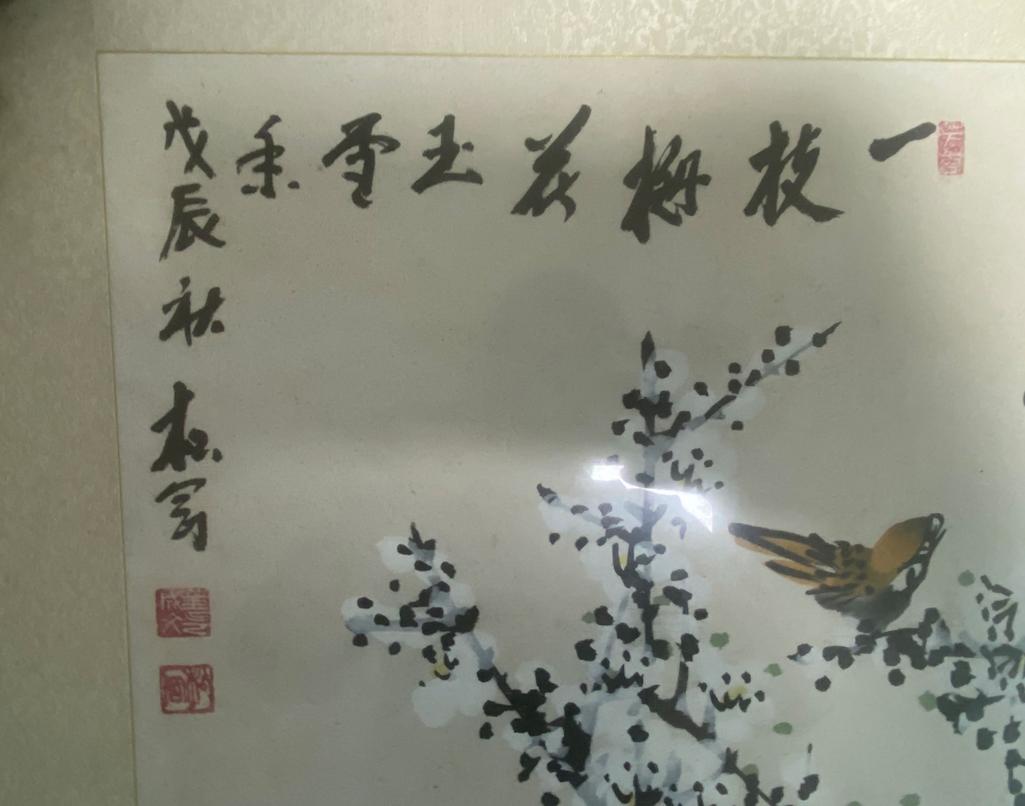 一枝梅花玉雪香
戊辰秋松